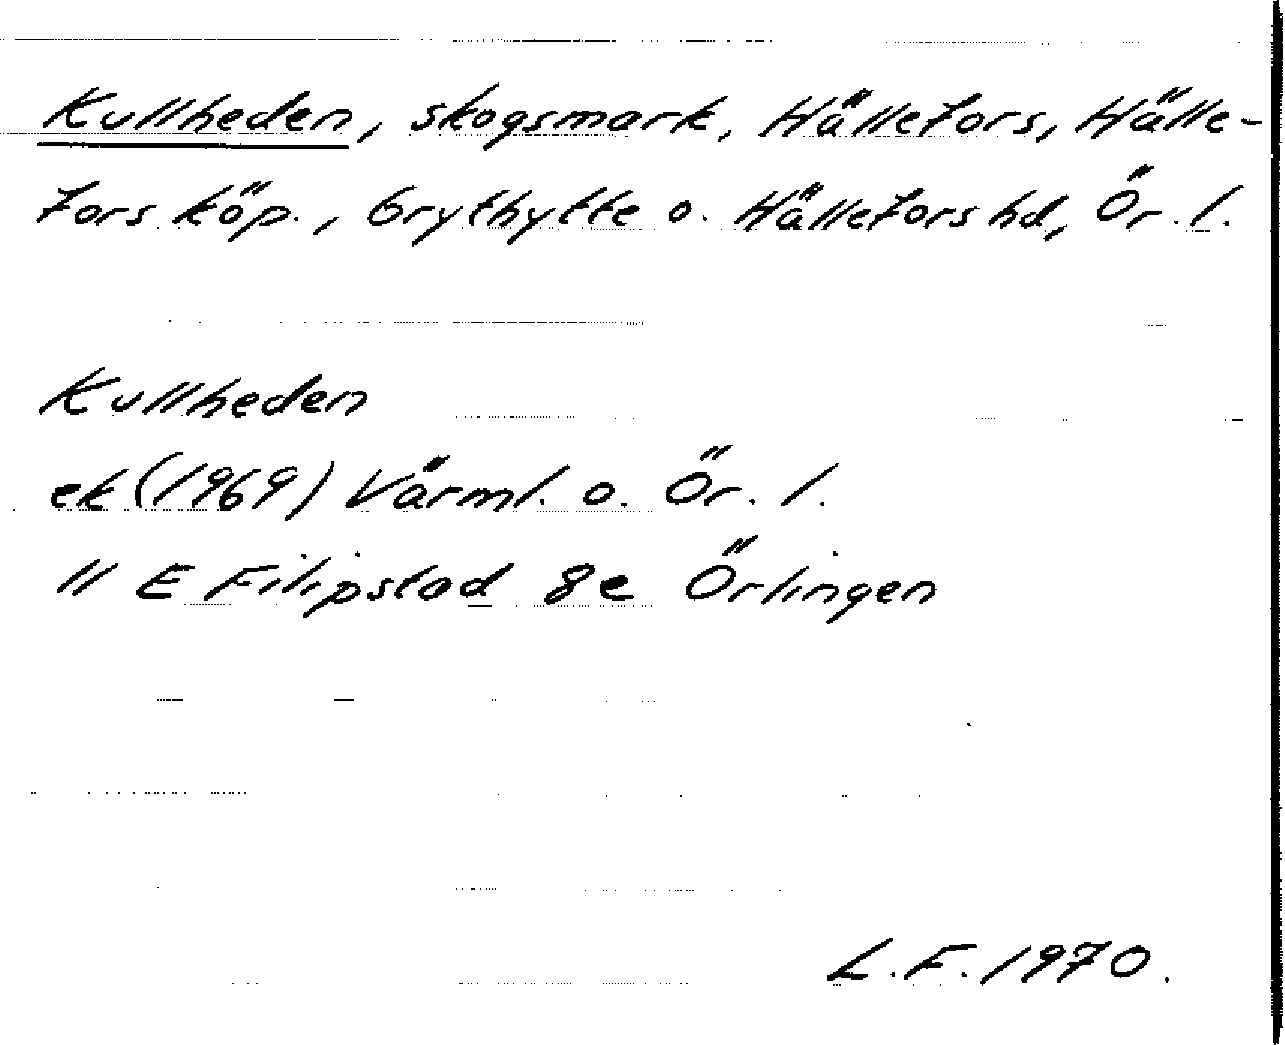 Kullheden, skogsmark, Hällefors, Hälle-
fors köp., Grythytte o. Hällefors hd, Ör. l.
Kullheden
ek (1969) Värml. o. Ör. l.
11 E Filipstad 8e Örlingen
L.F. 1970.